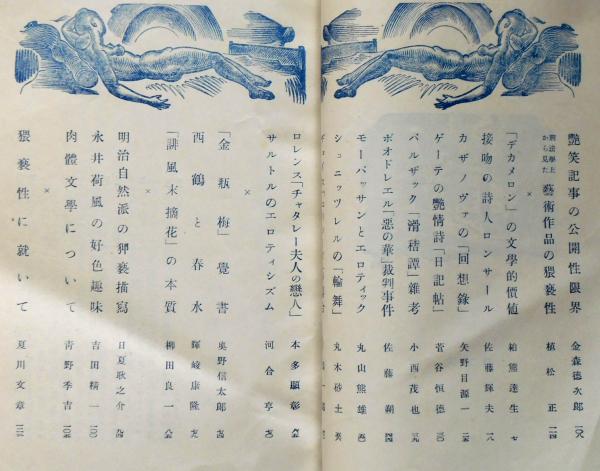 艶笑記事の公開性限界 金森徳次郎
刑法學上から見た 藝術作品の猥褻性 植松正
×
「デカメロン」の文學的價値 柏熊達生 七
接吻の詩人ロンサール 佐藤輝夫 一八
カザノヴァの「回想錄」 矢野目源一
ゲーテの艶情詩「日記帖」 菅谷恒德
バルザック「滑稽譚」雜考 小西茂也
ボオドレエル「惡の華」裁判事件 佐藤朔
モーパッサンとエロティック 丸山熊雄
シュニッツレルの「輪舞」 丸木砂土
ロレンス「チャタレー夫人の戀人」 本多顯彰
サルトルのエロティシズム 河合亨
×
「金瓶梅」覺書 奥野信太郎
西鶴と春水 暉峻康隆
「誹風末摘花」の本質 柳田良一
×
明治自然派の猥褻描寫 日夏耿之介
永井荷風の好色趣味 吉田精一 一〇〇
肉體文學について 青野季吉
×
猥褻性に就いて 夏川文章